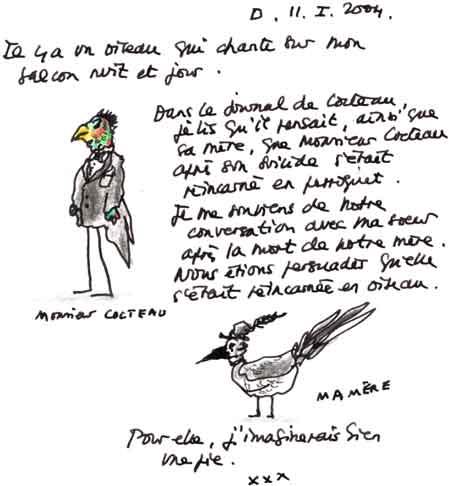 D. 11. I. 2004.
Il y a un oiteau qui chante sur mon
balcon nuit et jour.
Dans le journal de Cocteau,
je lis qu'il pensait, ainsi que
sa mère, que Monsieur Cocteau
après son suicide s'était
réincarné en perroquet.
Je me souviens de notre
conversation avec ma soeur
après la mort de notre mère.
Nous étions persuadés qu'elle
s'était réincarnée en oiseau.
MONSIEUR COCTEAU
MA MÈRE
Pour elle, j'imaginerais bien
une pie.
xxx